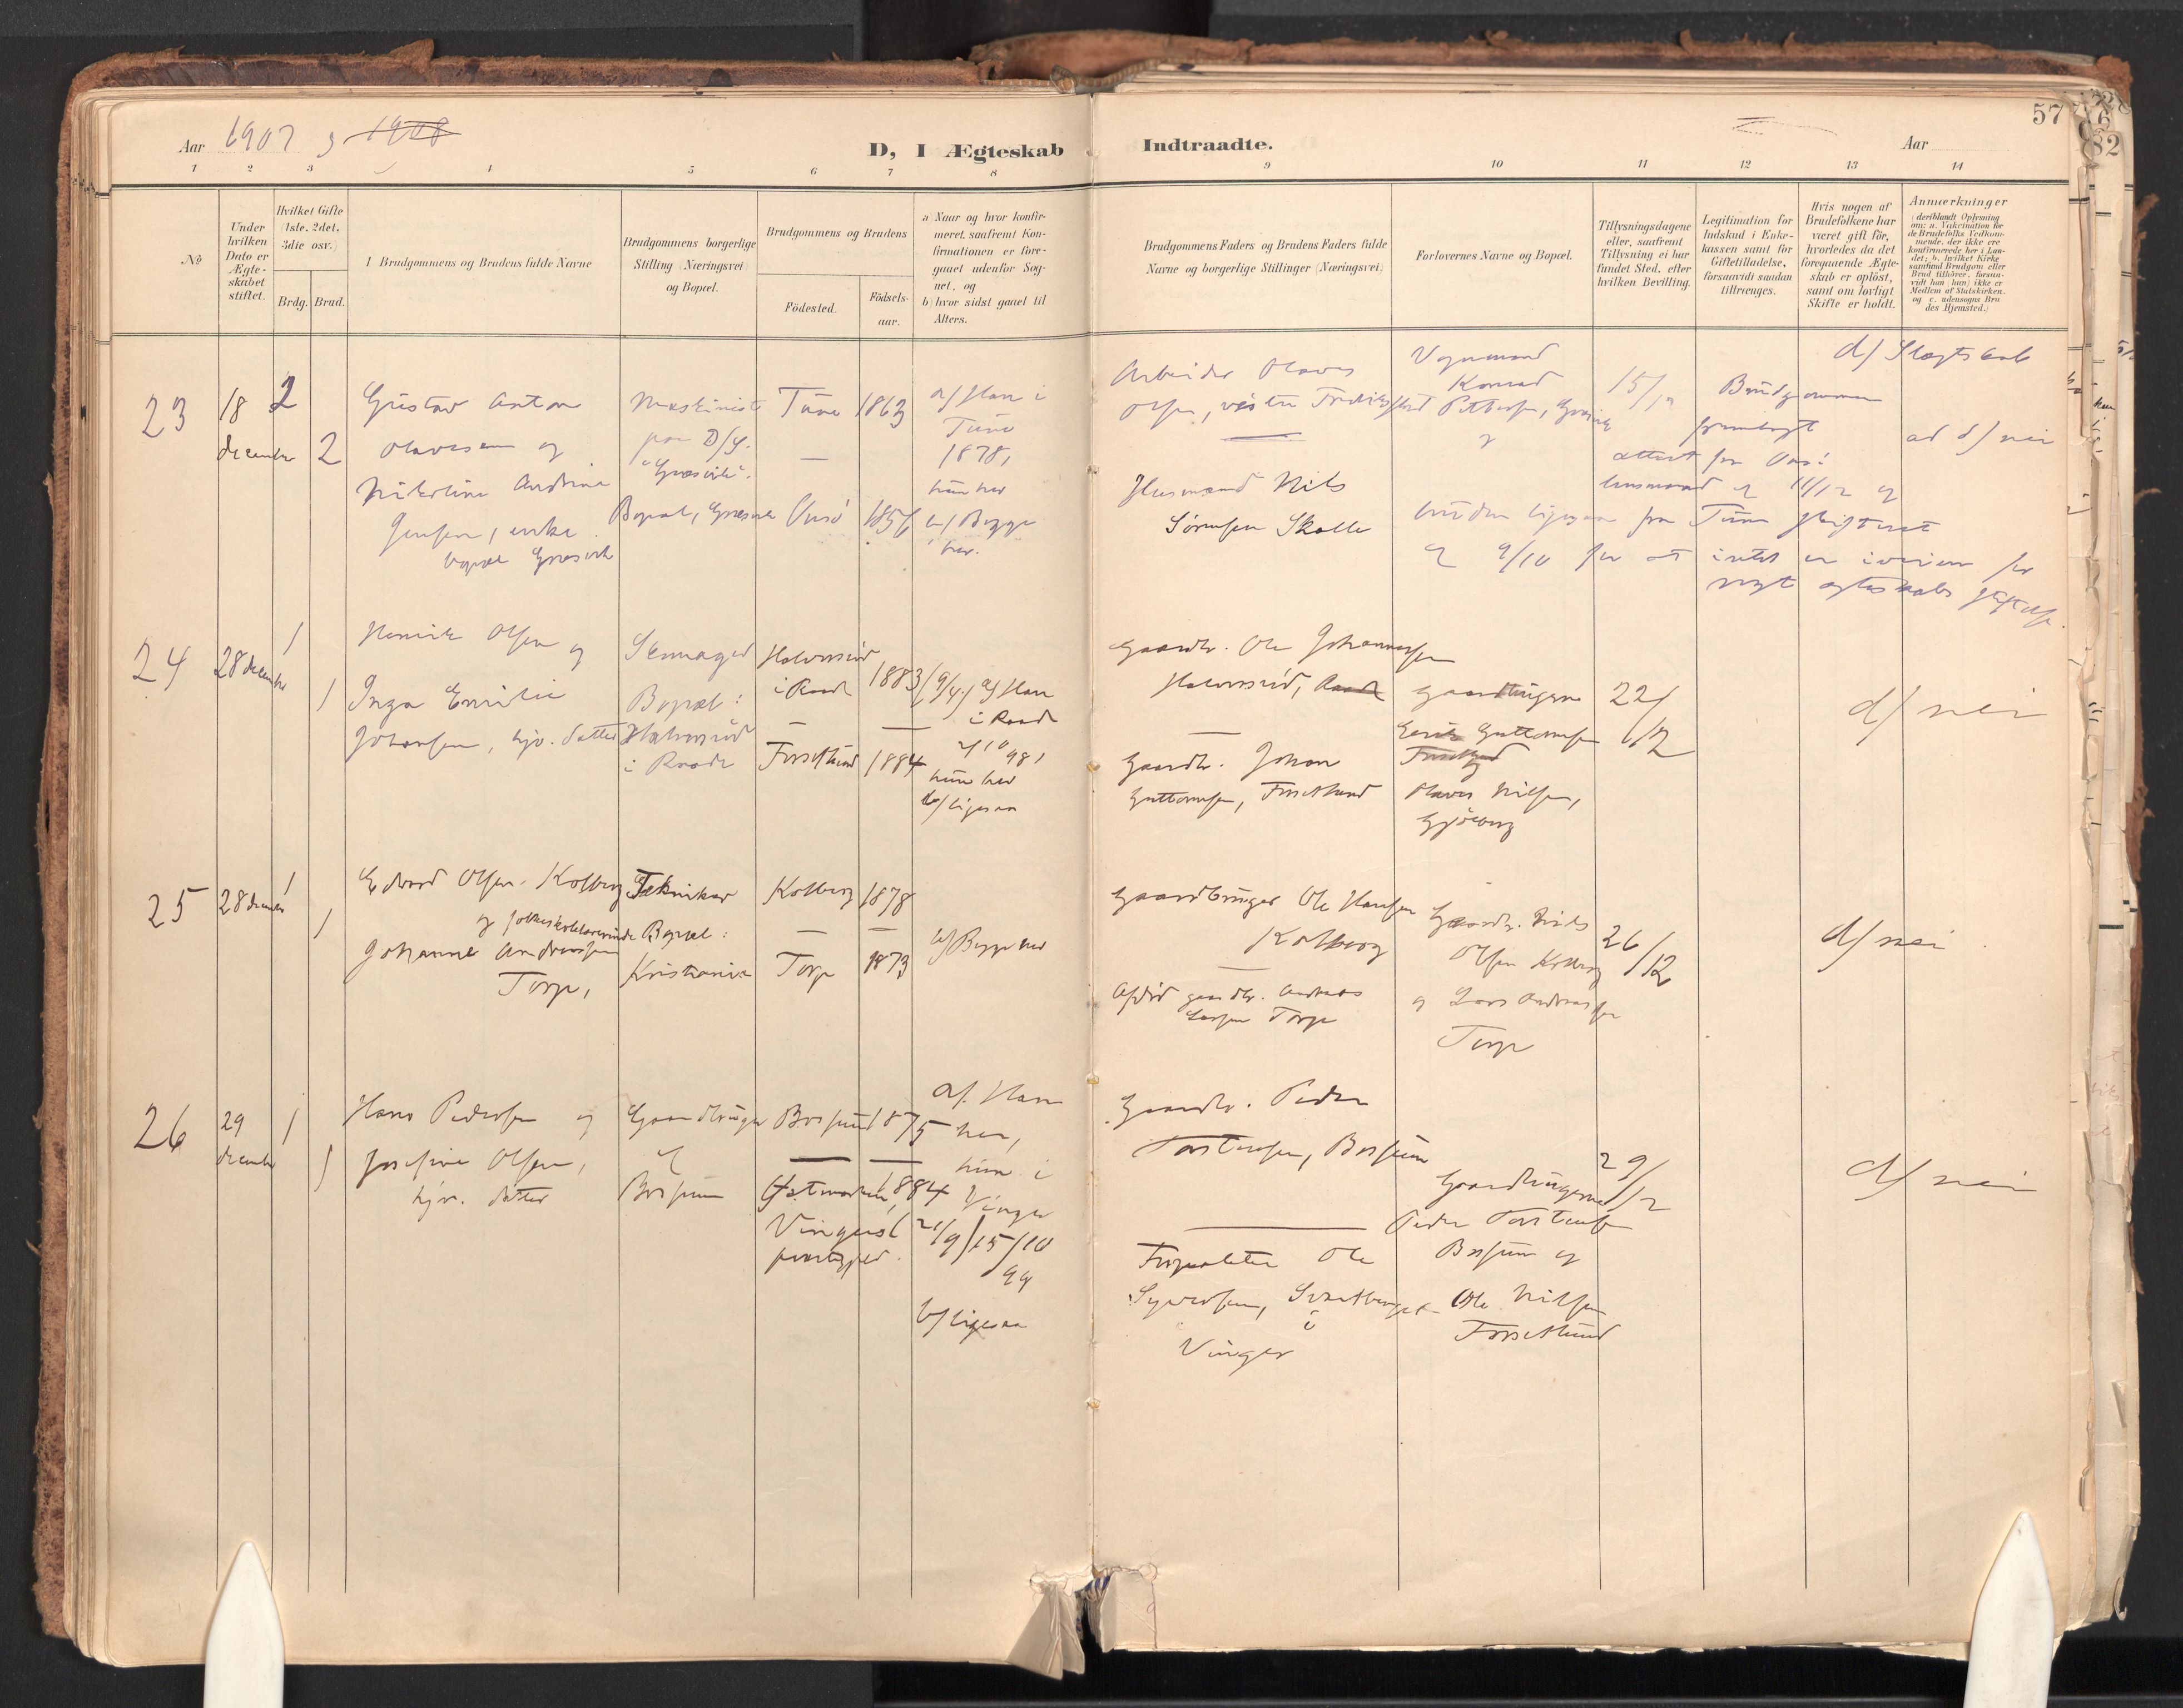 57
Aar 1907 og 1908
D, I Ægteskab Indtraadte.
Aar
1 2 3 4 5 6 7 8 9 10 11 12 13 14
No
Under hvilken Dato er Ægteskabet stiftet.
Hvilket Gifte (1ste, 2det, 3die osv.)
Brdg. Brud.
Brudgommens og Brudens fulde Navne
Brudgommens borgerlige Stilling (Næringsvei) og Bopæl.
Brudgommens og Brudens
Födested.
Födselsaar.
a) Naar og hvor konfirmeret, saafremt Konfirmationen er foregaaet udenfor Sognet, og
b) hvor sidst gaaet til Alters.
Brudgommens Faders og Brudens Faders fulde Navne og borgerlige Stillinger (Næringsvei)
Forlovernes Navne og Bopæl.
Tillysningsdagene eller, saafremt Tillysning ei har fundet Sted, efter hvilken Bevilling.
Legitimation for Indskud i Enkekassen samt for Giftetilladelse, forsaavidt saadan tiltrænges.
Hvis nogen af Brudefolkene har været gift för, hvorledes da det foregaaende Ægteskab er oplöst, samt om lovligt Skifte er holdt.
Anmærkninger
(deriblandt Oplysning om: a. Vakcination for de Brudefolks Vedkommende, der ikke ere konfirmerede her i Landet; b. hvilket Kirkesamfund Brudgom eller Brud tilhörer, forsaavidt han (hun) ikke er Medlem af Statskirken, og c. udensogns Brudes Hjemsted.)
23
18 december
2
2
Gustav Anton
Olavesen og
Nikoline Andrine
Jensen, enke
bopæl Græsvik
Maskinist
paa D/S.
"Græsvik".
Bopæl, Græsvik
Tune 1863
Onsö 1856
a/ Han i
Tune
1878,
hun her
b/ Begge
her.
Arbeider Olaves
Olsen, vestre Fredrikstad
Husmand Nils
Sörensen Skolle
Vognmand
Konrad
Pettersen, Græsvik
15/12
d/ Slægtskab
Brudgommen
fremlagt
ad d/ nei
attest fra Onsö
lensmand af 11/12 og
bruden ligesaa fra Tune skifteret
af 9/10 for at intet er iveien for
nyt ægteskabs stiftelse.
24
28 december
1
1
Henrik Olsen og
Inga Emilie
Johansen, hjv. datter
Skomager
Bopæl:
Halvorsrud
i Raade
Halvorsrud
i Raade 1883
Forsetlund 1884
a/ Han
i Raade
2/10 98,
hun her
b/ ligesaa
Gaardbr. Ole Johannesen
Halvorsrud, Raade
Gaardbr. Johan
Guttormsen, Forsetlund
Gaardbrugerne
Erik Guttormsen
Olaves Nilsen,
22/12
d/ nei
25
28 december
1
1
Edvard Olsen Kolberg
og folkeskolelærerinde
Johanne Andreassen
Torp,
Tekniker
Bopæl:
Kristiania
Kolberg 1878
Torp 1873
b/ Begge her
Gaardbruger Ole Hansen
Kolberg
Afdöd gaardbr. Andreas
Larsen Torp
Gaardbr. Nils
Olsen Kolberg
og Lars Andreassen
Torp
26/12
d/ nei
26
29 december
1
1
Hans Pedersen og
Josefine Olsen,
hjv. datter
Gaardbruger
af
Bossum
Bossum 1875
Östmarken, 1884
Vinger
prestegjeld.
a/. Han
her,
hun i
Vinger
15/10
99
b/ ligesaa
Gaardbr. Peder
Torstensen, Bossum
Forpakter Ole
Syversen, Svartberget
i
Vinger
Gaardbrugerne
Peder Torstensen
Bossum og
Ole Nilsen
Forsetlund
29/12
d/ nei